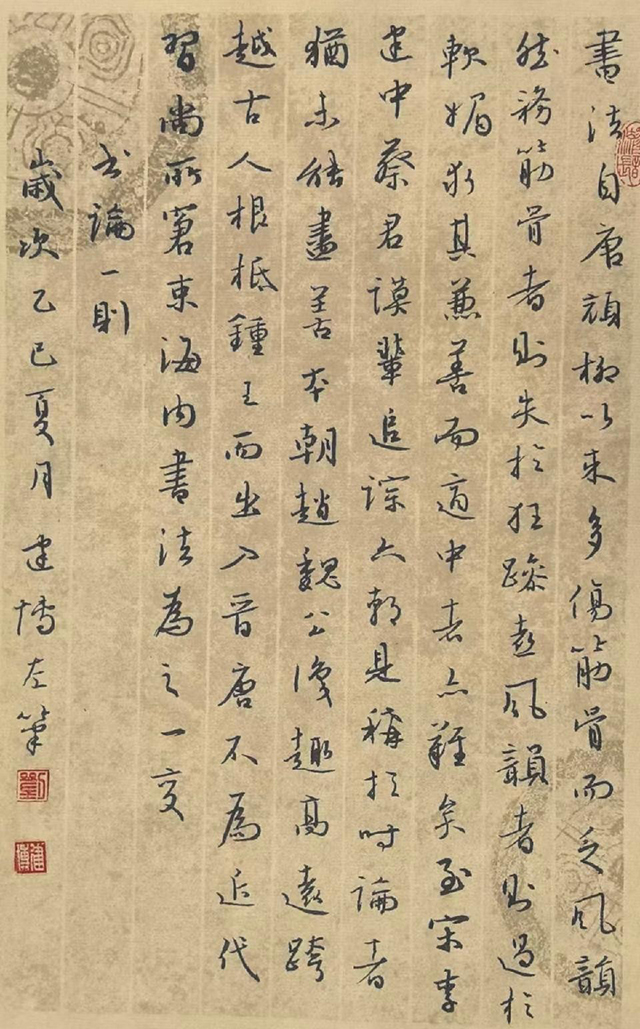 書法自唐顔柳以來多傷筋骨而乏風韻
然務筋骨者則失於狂躁喜風韻者則過於
軟媚求其兼善而適中者亦難矣至宋李
建中蔡君謨輩追踪六朝是稱於時論者
猶未能盡善本朝趙魏公識趣高遠跨
越古人根柢鍾王而出入晉唐不為近代
習尚所窘束海内書法為之一變
書論一則
歲次乙巳夏月建博左筆
劉
建博